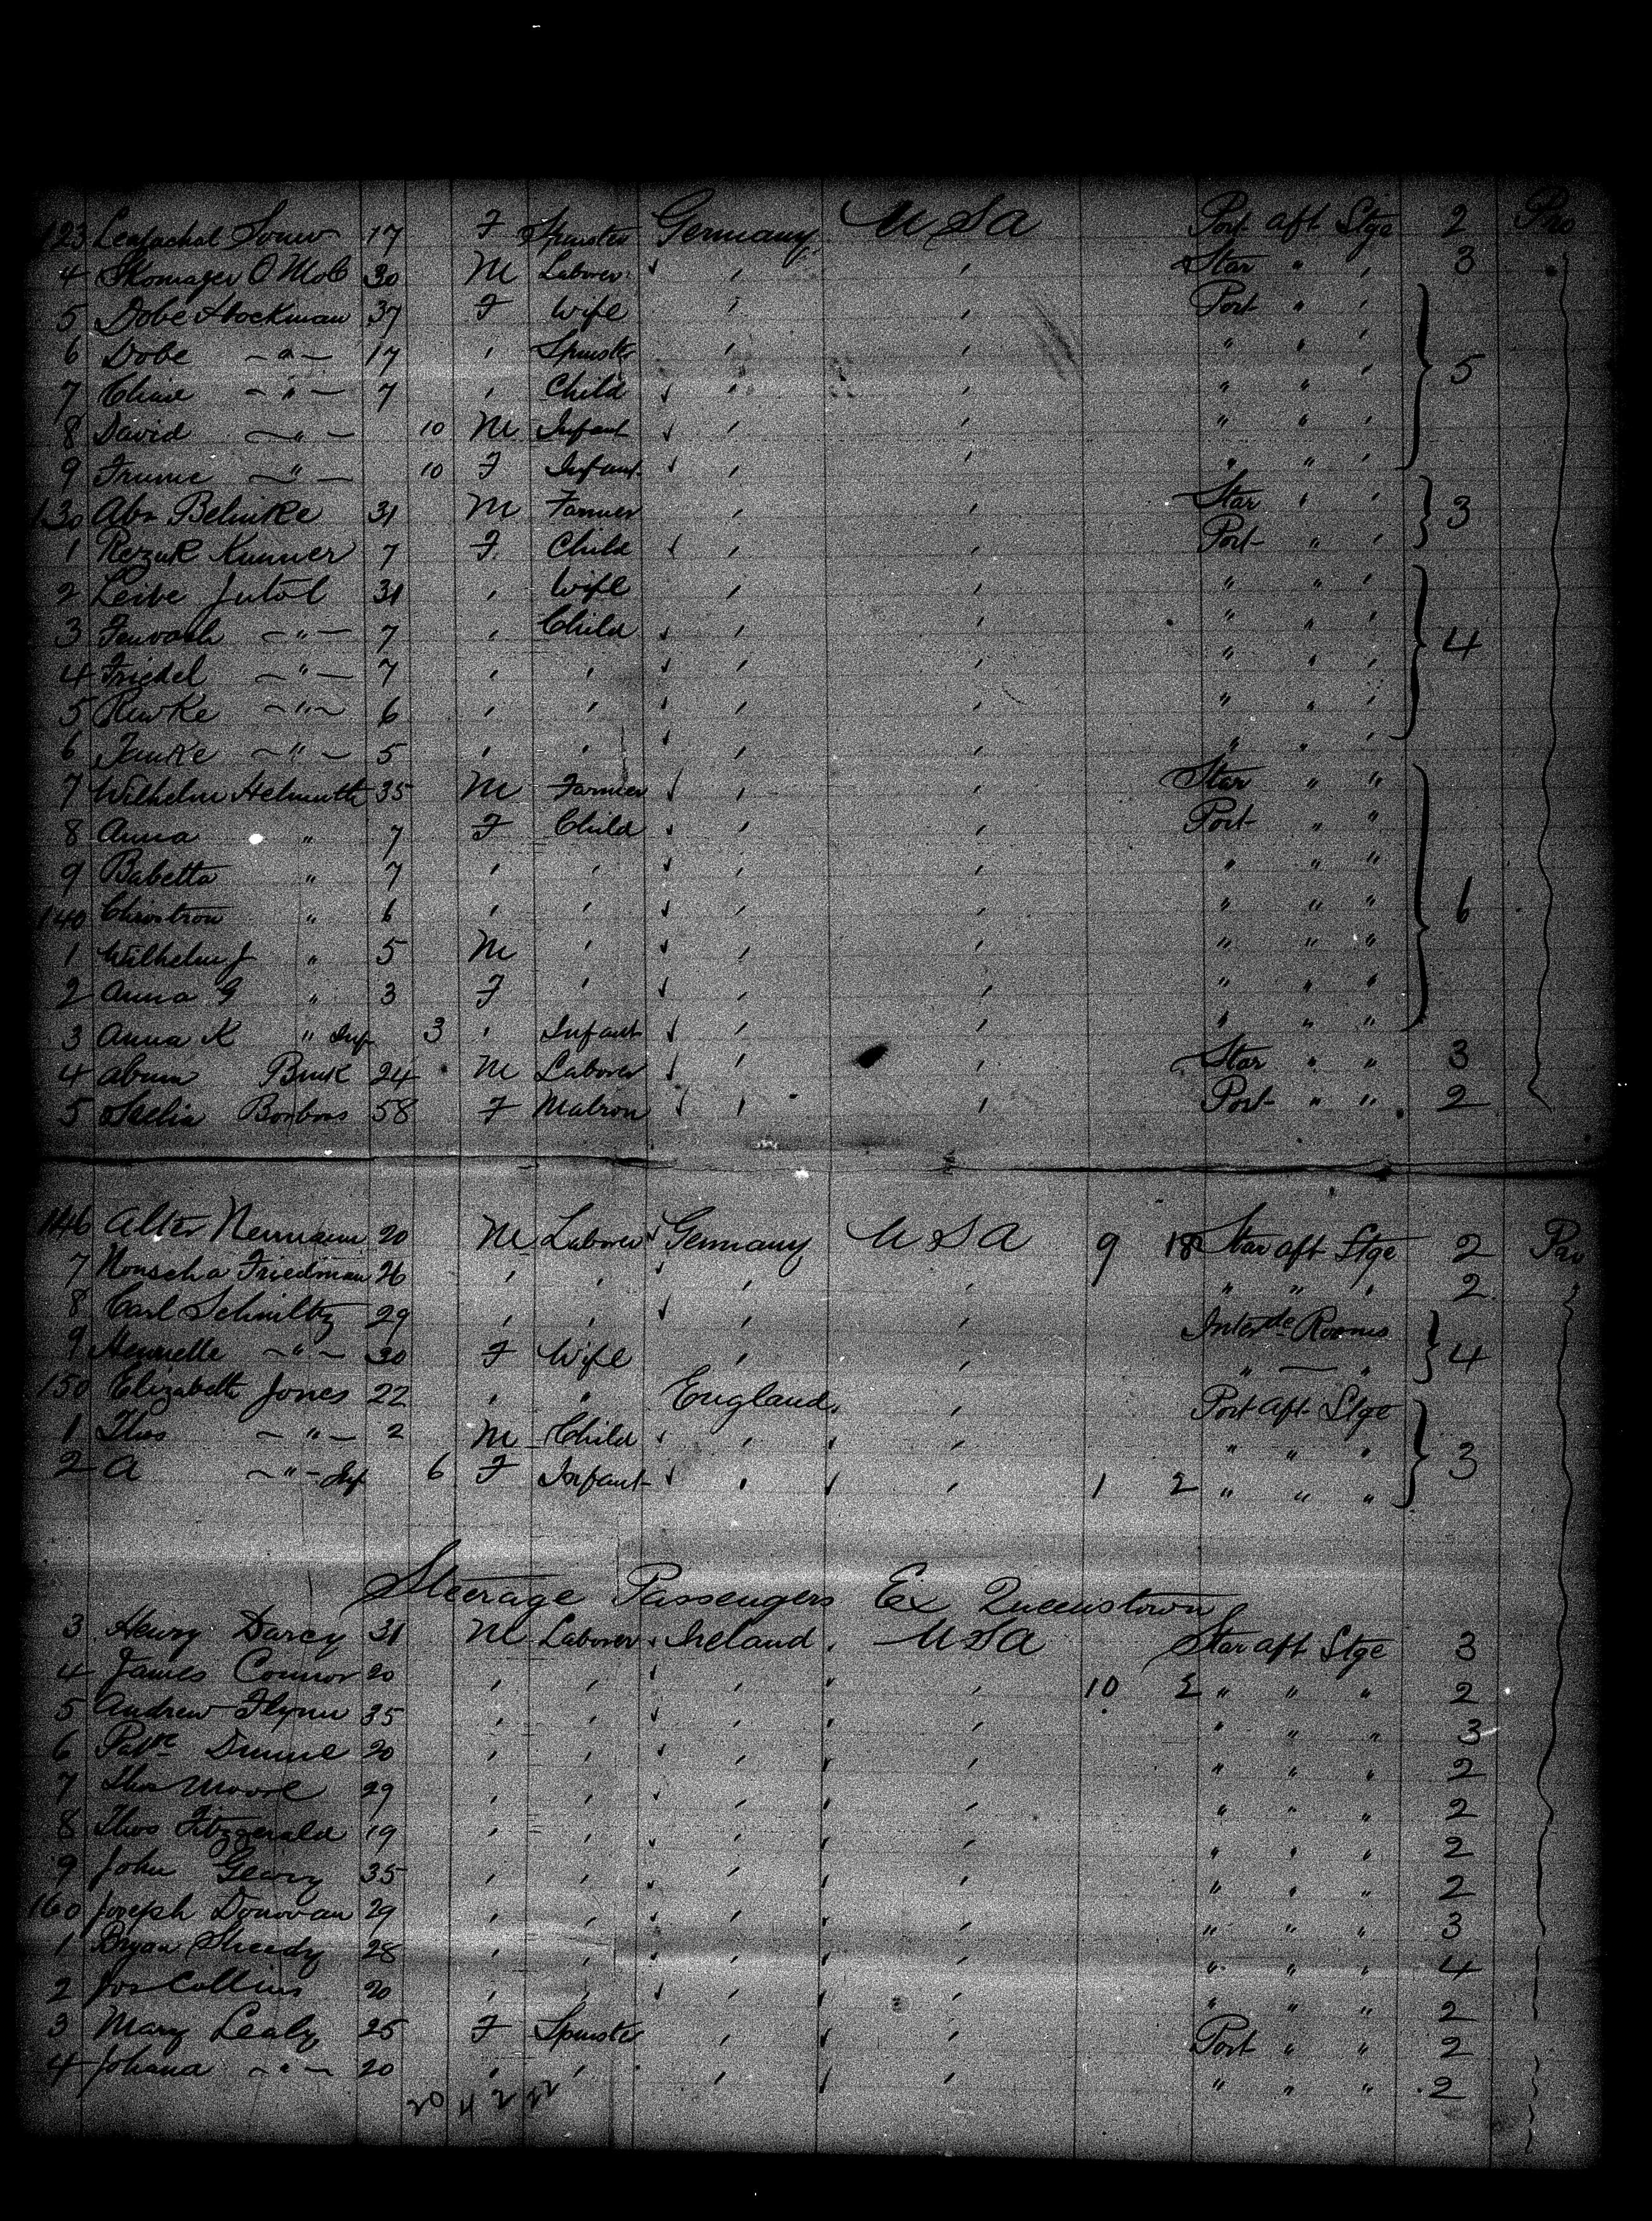 123 17 F Spinster Germany USA Port aft Stge 2 Pro
4 30 M Laborer " " Star " " 3
5 Dobe Hockman 37 F Wife " " Port " "
6 Dobe —"— 17 " Spinster " " " " "
7 —"— 7 " Child " " " " " 5
8 David —"— 10 M Infant " " " " "
9 Frume —"— 10 F Infant " " " " "
130 Abr Belinke 31 M Farmer " " Star " " 3
1 Kunner 7 F Child " " Port " "
2 Leibe Jutot 31 " Wife " " " " "
3 —"— 7 " Child " " " " " 4
4 Friedel —"— 7 " " " " " " "
5 Rewke —"— 6 " " " " " " "
6 —"— 5 " " " " " " "
7 Wilhelm Helmuth 35 M Farmer " " Star " "
8 Anna " 7 F Child " " Port " "
9 Babetta " 7 " " " " " " "
140 " 6 " " " " " " " 6
1 Wilhelm J " 5 M " " " " " "
2 Anna G " 3 F " " " " " "
3 Anna K " Inf 3 " Infant " " " " "
4 Abum Bruk 24 M Laborer " " Star " " 3
5 58 F Matron " " Port " " 2
146 Alter Nermann 20 M Laborer Germany USA 9 18 Star aft Stge 2 Pro
7 Friedman 26 " " " " " " " 2
8 Carl Schmiltz 29 " " " " Intermde Rooms
9 Henriette —"— 30 F Wife " " " — " 4
150 Elizabeth Jones 22 " " England " Port aft Stge
1 Thos —"— 2 M Child " " " " " 3
2 A —"— Inf 6 F Infant " " 1 2 " " "
Steerage Passengers Ex Queenstown
3 Henry Darcy 31 M Laborer Ireland USA Star aft Stge 3
4 James Connor 20 " " " " 10 2 " " " 2
5 Andrew Flynn 35 " " " " " " " 3
6 Patk Dunne 20 " " " " " " " 2
7 Thos Moore 29 " " " " " " " 2
8 Thos Fitzgerald 19 " " " " " " " 2
9 John Geary 35 " " " " " " " 2
160 Joseph Donovan 29 " " " " " " " 3
1 Bryan Sheedy 28 " " " " " " " 4
2 Jos Collins 20 " " " " " " " 2
3 Mary Lealy 25 F Spinster " " Port " " 2
4 Johana —"— 20 " " " " " " " 2
20 4 2 22